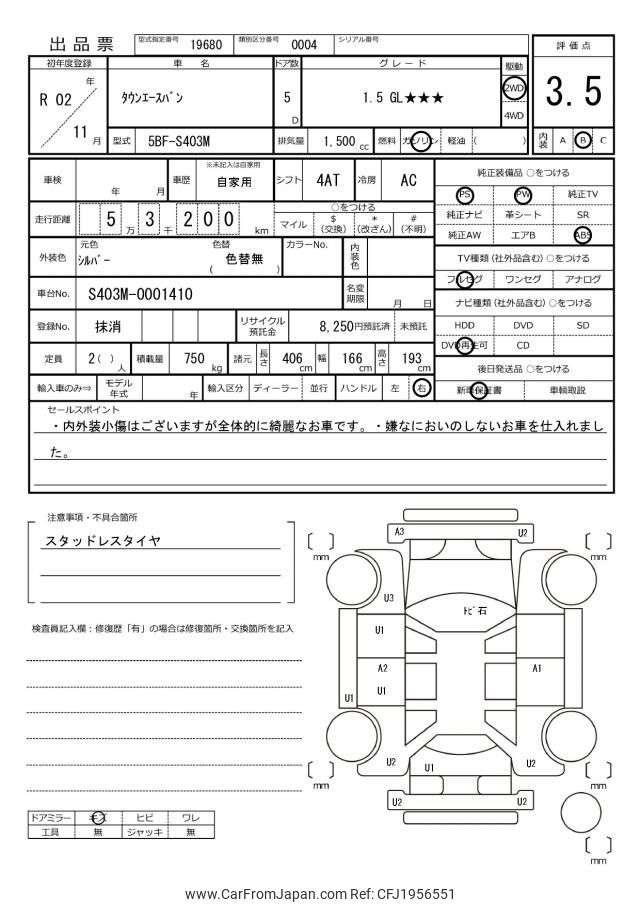 出品票 型式指定番号 19680 類別区分番号 0004 シリアル番号
評価点
3.5
初年度登録 車名 ドア数 グレード 駆動
R 02 年 11 月 タウンエースバン 5 D 1.5 GL★★★ 2WD 4WD
型式 5BF-S403M 排気量 1,500 cc 燃料 ガソリン 軽油 ( ) 内装 A B C
車検 年 月 車歴 ※未記入は自家用 自家用 シフト 4AT 冷房 AC
走行距離 5 万 3 千 2 0 0 km
○をつける
マイル $(交換) *(改ざん) #(不明)
外装色 元色 シルバー 色替 ( 色替無 ) カラーNo. 内装色
車台No. S403M-0001410 名変期限 月 日
登録No. 抹消 リサイクル預託金 8,250円預託済 未預託
定員 2( )人 積載量 750 kg 諸元 長さ 406 cm 幅 166 cm 高さ 193 cm
輸入車のみ⇒ モデル年式 年 輸入区分 ディーラー 並行 ハンドル 左 右
純正装備品 ○をつける
PS PW 純正TV
純正ナビ 革シート SR
純正AW エアB ABS
TV種類 (社外品含む) ○をつける
フルセグ ワンセグ アナログ
ナビ種類 (社外品含む) ○をつける
HDD DVD SD
DVD再生可 CD
後日発送品 ○をつける
新車保証書 車輌取説
セールスポイント
・内外装小傷はございますが全体的に綺麗なお車です。・嫌なにおいのしないお車を仕入れまし
た。
注意事項・不具合箇所
スタッドレスタイヤ
検査員記入欄：修復歴「有」の場合は修復箇所・交換箇所を記入
ドアミラー キズ ヒビ ワレ
工具 無 ジャッキ 無
A3 U2
mm mm
U3
トビ石
U1
A2 A1
U1
U1
U2 U2
U1
mm mm
U2 U2
mm
www.CarFromJapan.com Ref: CFJ1956551